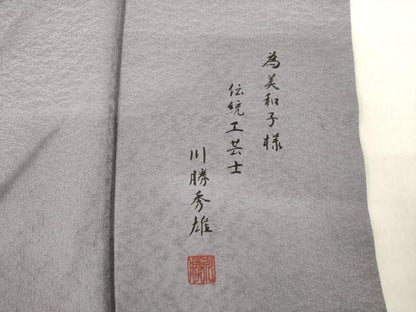 為美和子様
伝統工芸士
川勝秀雄